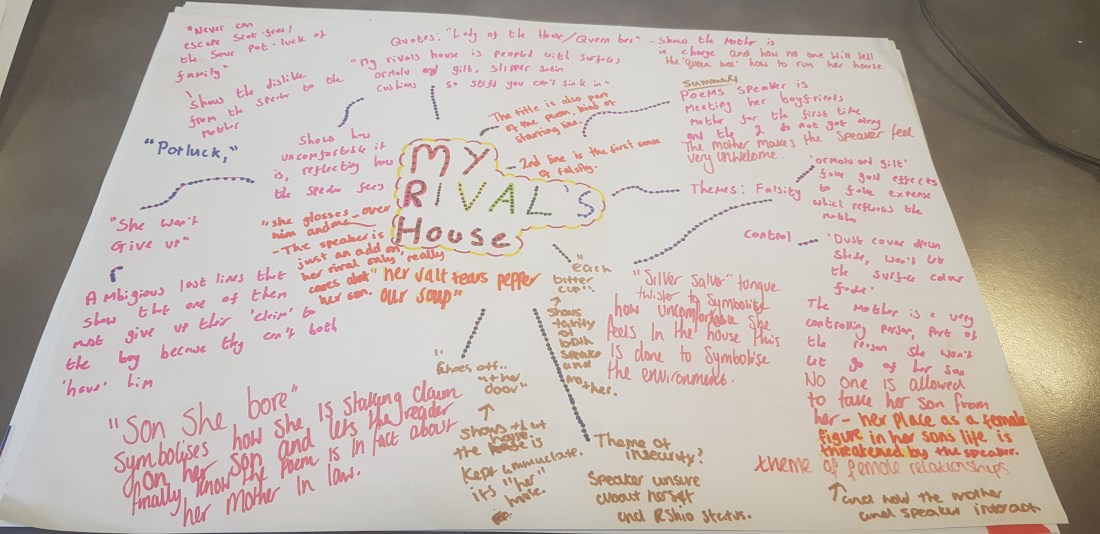 "Never can
escape scot-free/
the sour pot-luck of
family"
'shows the dislike
from the speaker to the
mother
"Potluck,"
Quotes: "Lady of the House/Queen bee" - shows the mother is
in charge and how no one will tell
the 'queen bee' how to run her house
"My rivals house is peopled with surfaces
ormolu and gilt, slipper satin
cushions so stiff you can't sink in"
Shows how
uncomfortable it
is, reflecting how
the speaker feels
The title is also part
of the poem, kind of
starting line.
- 2nd line is the first sense
of falsity.
MY
RIVAL'S
House
Summary
Poems speaker is
meeting her boyfriends
mother for the first time
and the 2 do not get along
The mother makes the speaker feel
very unwelcome.
Themes: Falsity
'ormolu and gilt'
fake gold effects
to fake expense
which reflects the
mother
Control
'Dust cover drawn
slide, won't let
the surface colour
fade'
The mother is a very
controlling person, part of
the reason she won't
let go of her son
No one is allowed
to take her son from
her - her place as a female
figure in her sons life is
threatened by the speaker.
theme of female relationships
and how the mother
and speaker interact
"She won't
Give up"
Ambigious last lines that
show that one of them
must give up their 'claim' to
the boy because they can't both
'have' him
"she glosses over
him and me
- The speaker is
just an add on,
her rival only really
cares about
her son.
"her salt tears pepper
our soup"
"each
bitter
cup".
shows
falsity
of
both
speaker
and
mother.
"Silver Salver" tongue
twister to symbolise
how uncomfortable she
feels in the house this
is done to symbolise
the environment.
"Son she bore"
Symbolises how she is staking claim
on her son and lets the reader
finally know the poem is in fact about
her mother in law.
"Shoes off..
at her
door"
shows that
the house is
kept immaculate.
its "her"
home.
Theme of
insecurity?
Speaker unsure
about herself
and RShip status.